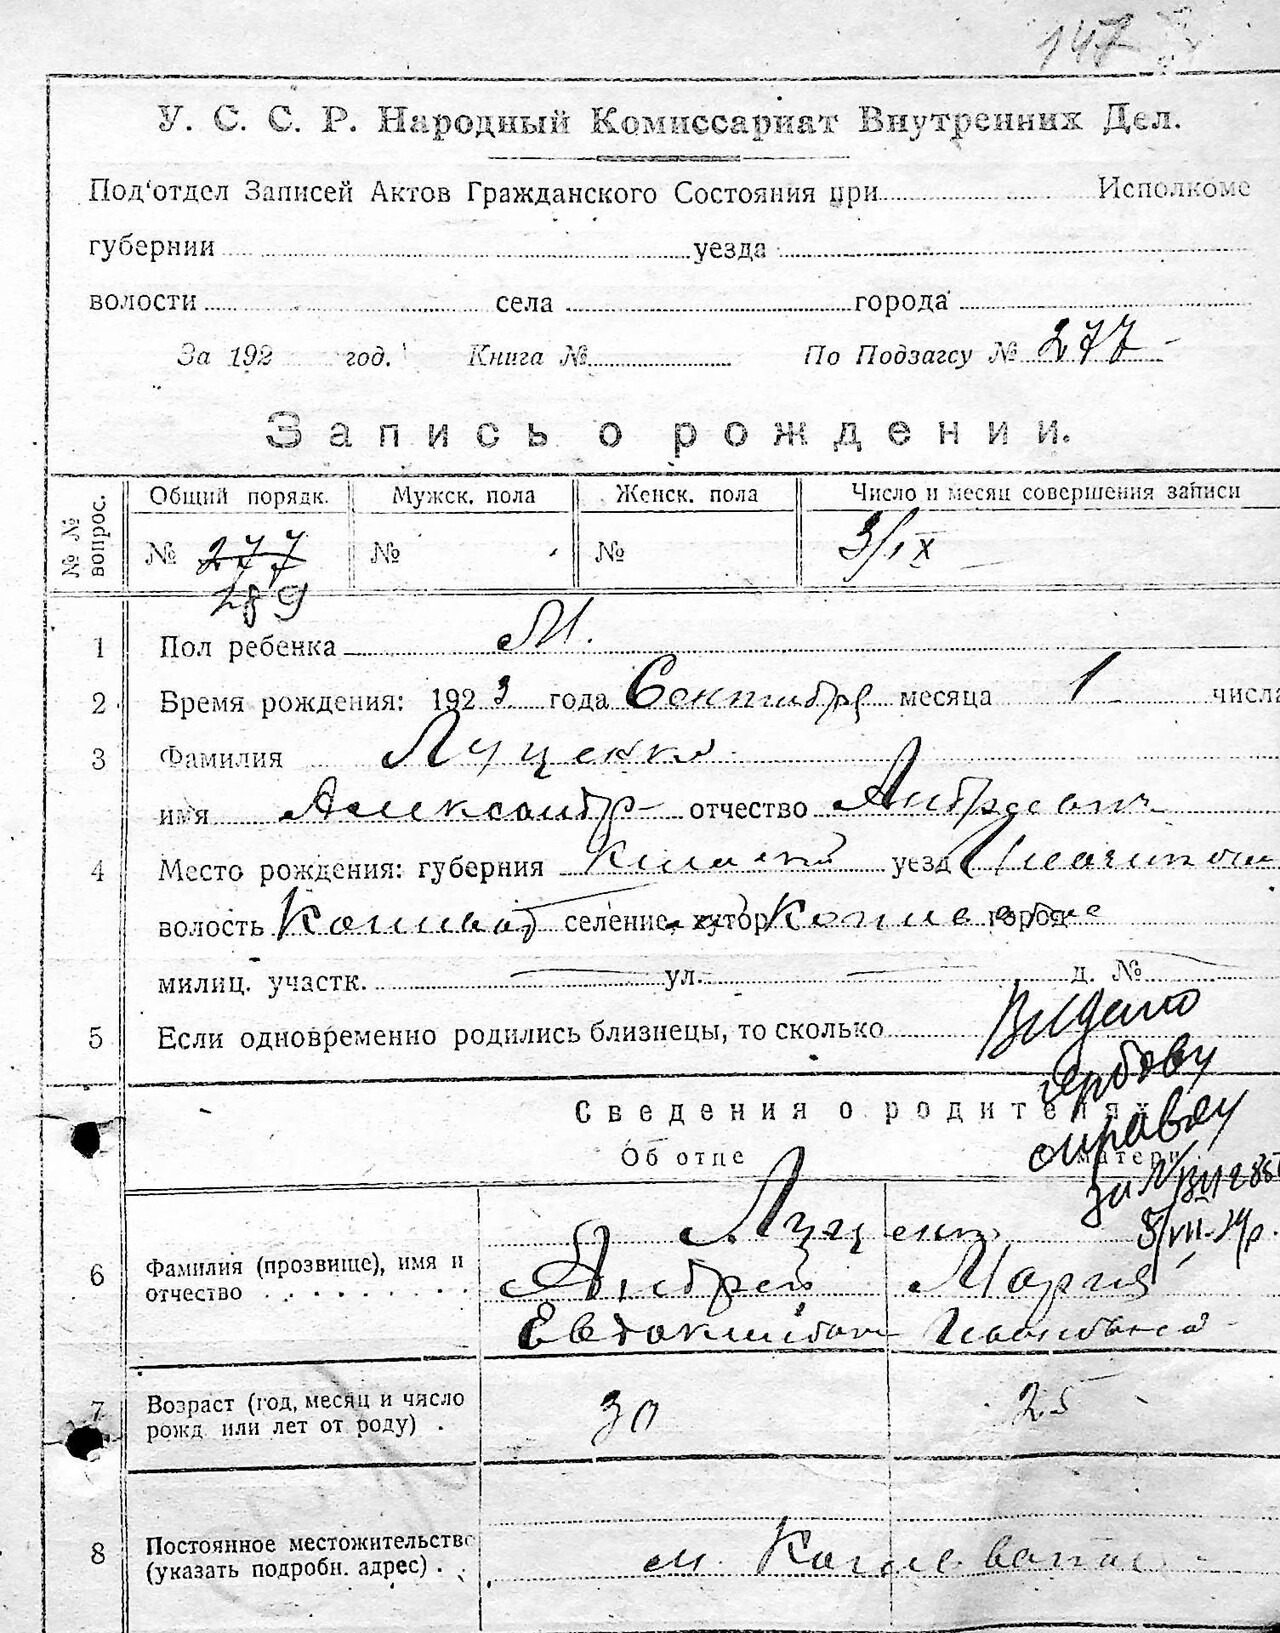 147
У. С. С. Р. Народный Комиссариат Внутренних Дел.
Под'отдел Записей Актов Гражданского Состояния при Исполкоме
губернии уезда
волости села города
За 192 год. Книга № По Подзагсу № 277
Запись о рождении.
№ № вопрос. Общий порядк. Мужск. пола Женск. пола Число и месяц совершения записи
№ 277 № № 3/IX
289
1 Пол ребенка М.
2 Время рождения: 1923 года Сентября месяца 1 числа
3 Фамилия Луценко
имя Александр отчество Андреевич
4 Место рождения: губерния Киевской уезд
волость селение, хутор город
милиц. участк. ул. д. №
5 Если одновременно родились близнецы, то сколько
Видано
гербову
справку
за №
5/VII-
Сведения о родителях
Об отце матери
Луценко
6 Фамилия (прозвище), имя и отчество Андрей Мария
Евдокимович Ивановна
7 Возраст (год, месяц и число рожд или лет от роду) 30 25
8 Постоянное местожительство (указать подробн. адрес) м.